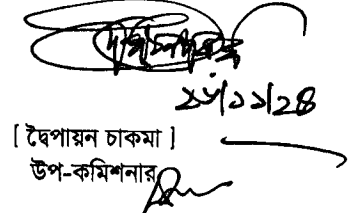 ২৮/১১/২৪
[ দ্বৈপায়ন চাকমা ]
উপ-কমিশনার